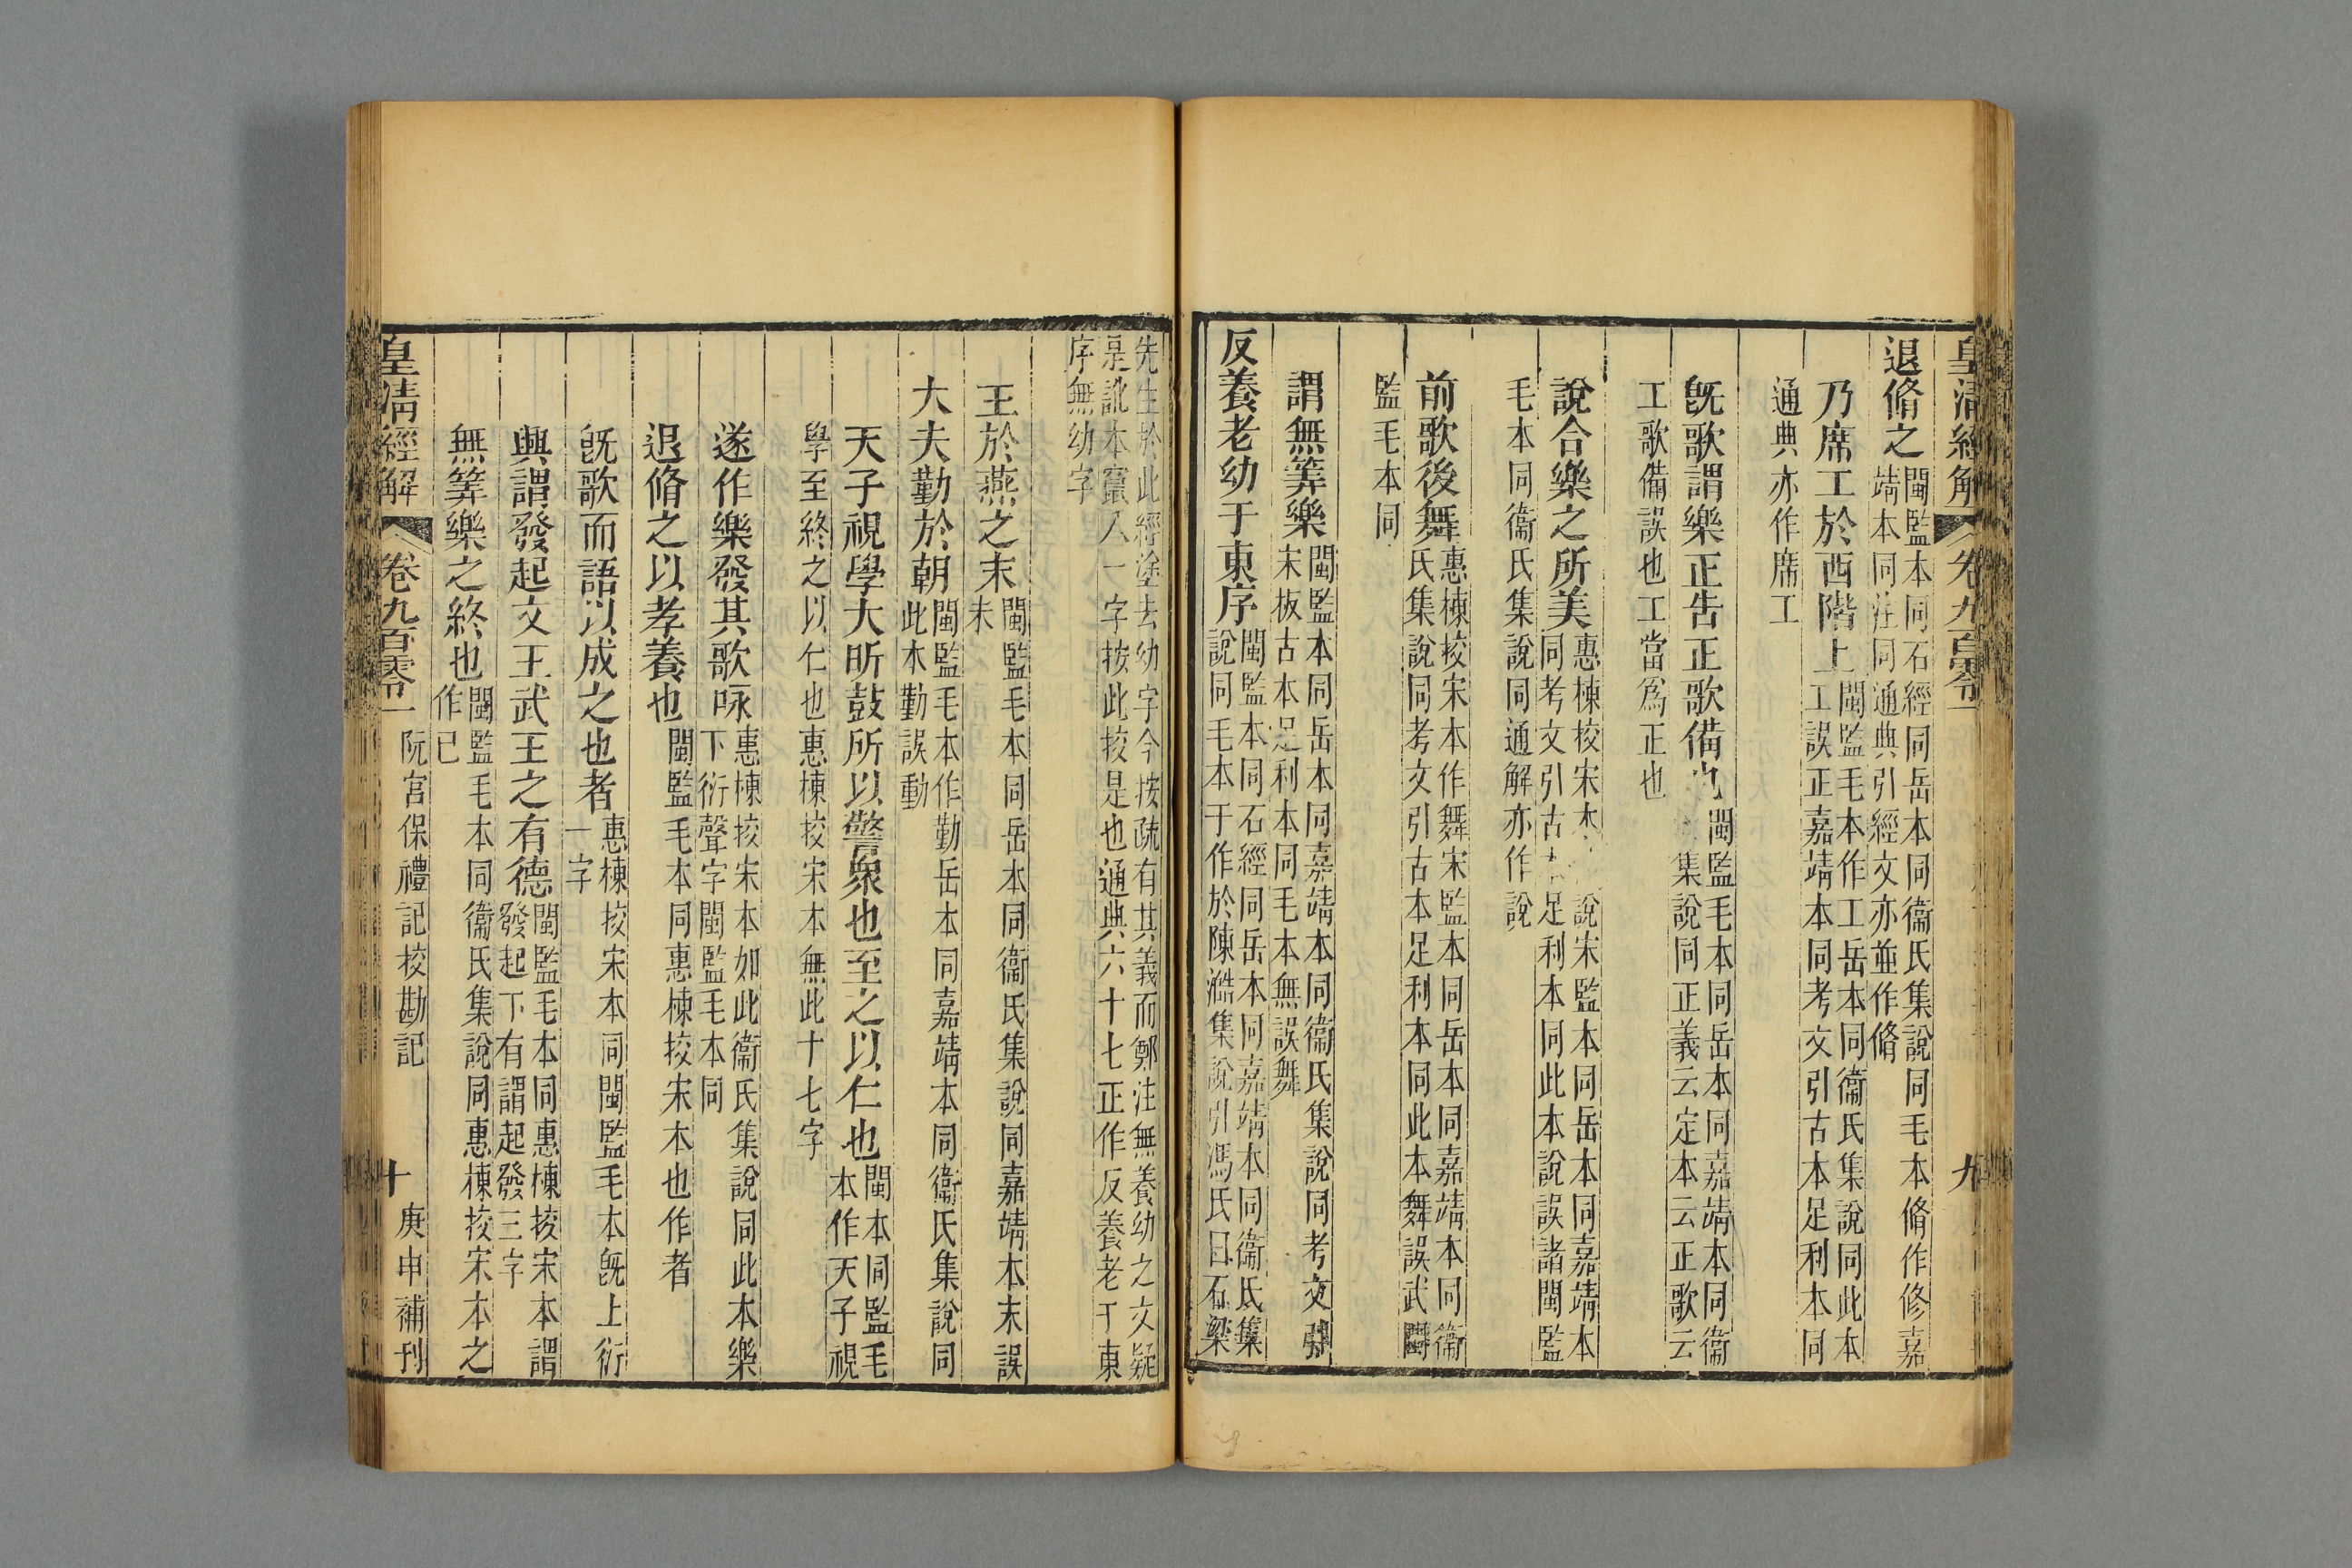 皇清經解 卷九百零一 九
退脩之閩監本同石經同岳本同衞氏集說同毛本脩作修嘉
靖本同注同通典引經文亦並作脩
乃席工於西階上閩監毛本作工岳本同衞氏集說同此本
工誤正嘉靖本同考文引古本足利本同
通典亦作席工
旣歌謂樂正告正歌備也閩監毛本同岳本同嘉靖本同衞
集說同正義云定本云正歌云
工歌備誤也工當爲正也
說合樂之所美惠棟校宋本 說宋監本同岳本同嘉靖本
同考文引古 足利本同此本說誤諸閩監
毛本同衞氏集說同通解亦作說
前歌後舞惠棟校宋本作舞宋監本同岳本同嘉靖本同衞
氏集說同考文引古本足利本同此本舞誤武閩
監毛本同
謂無筭樂閩監本同岳本同嘉靖本同衞氏集說同考文引
末板古本足利本同毛本無誤舞
反養老幼于東序閩監本同石經同岳本同嘉靖本同衞氏集
說同毛本于作於陳澔集說引馮氏曰石梁
先生於此經塗去幼字今按疏有其義而鄭注無養幼之文疑
是訛本竄入一字按此挍是也通典六十七正作反養老于東
序無幼字
王於燕之末閩監毛本同岳本同衞氏集說同嘉靖本末誤
未
大夫勤於朝閩監毛本作勤岳本同嘉靖本同衞氏集說同
此本勤誤動
天子視學大昕鼓所以警衆也至之以仁也閩本同監毛
本作天子視
學至終之以仁也惠棟挍宋本無此十七字
遂作樂發其歌咏惠棟挍宋本如此衞氏集說同此本樂
下衍聲字閩監毛本同
退脩之以孝養也閩監毛本同惠棟挍宋本也作者
旣歌而語以成之也者惠棟挍宋本同閩監毛本旣上衍
一字
興謂發起文王武王之有德閩監毛本同惠棟挍宋本謂
發起下有謂起發三字
無筭樂之終也閩監毛本同衞氏集說同惠棟挍宋本之
作已
皇清經解 卷九百零一 阮宮保禮記校勘記 十 庚申補刊